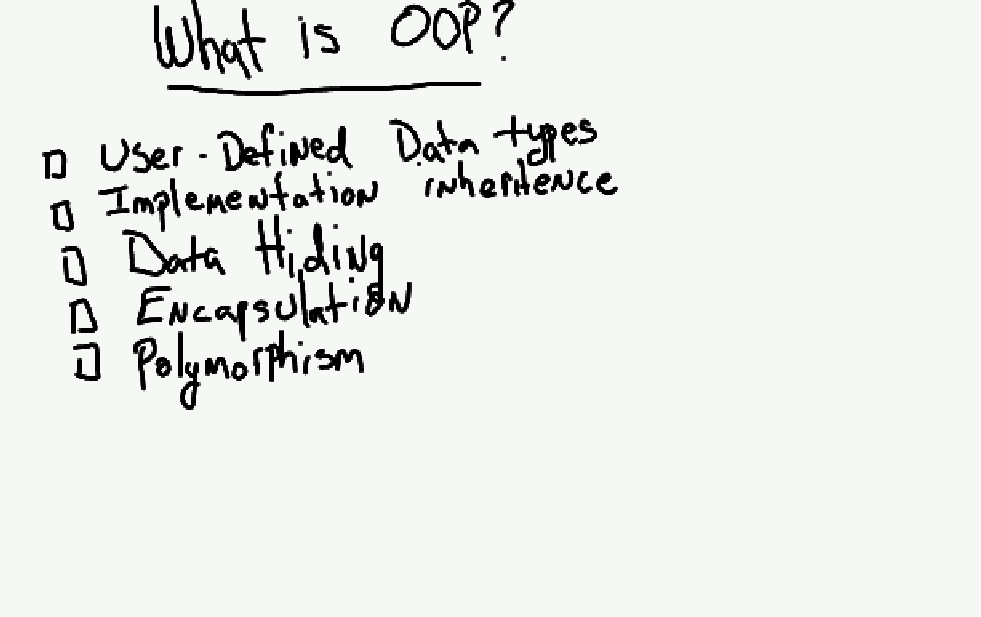 What is OOP?
User-Defined Data types
Implementation inheritence
Data Hiding
Encapsulation
Polymorphism